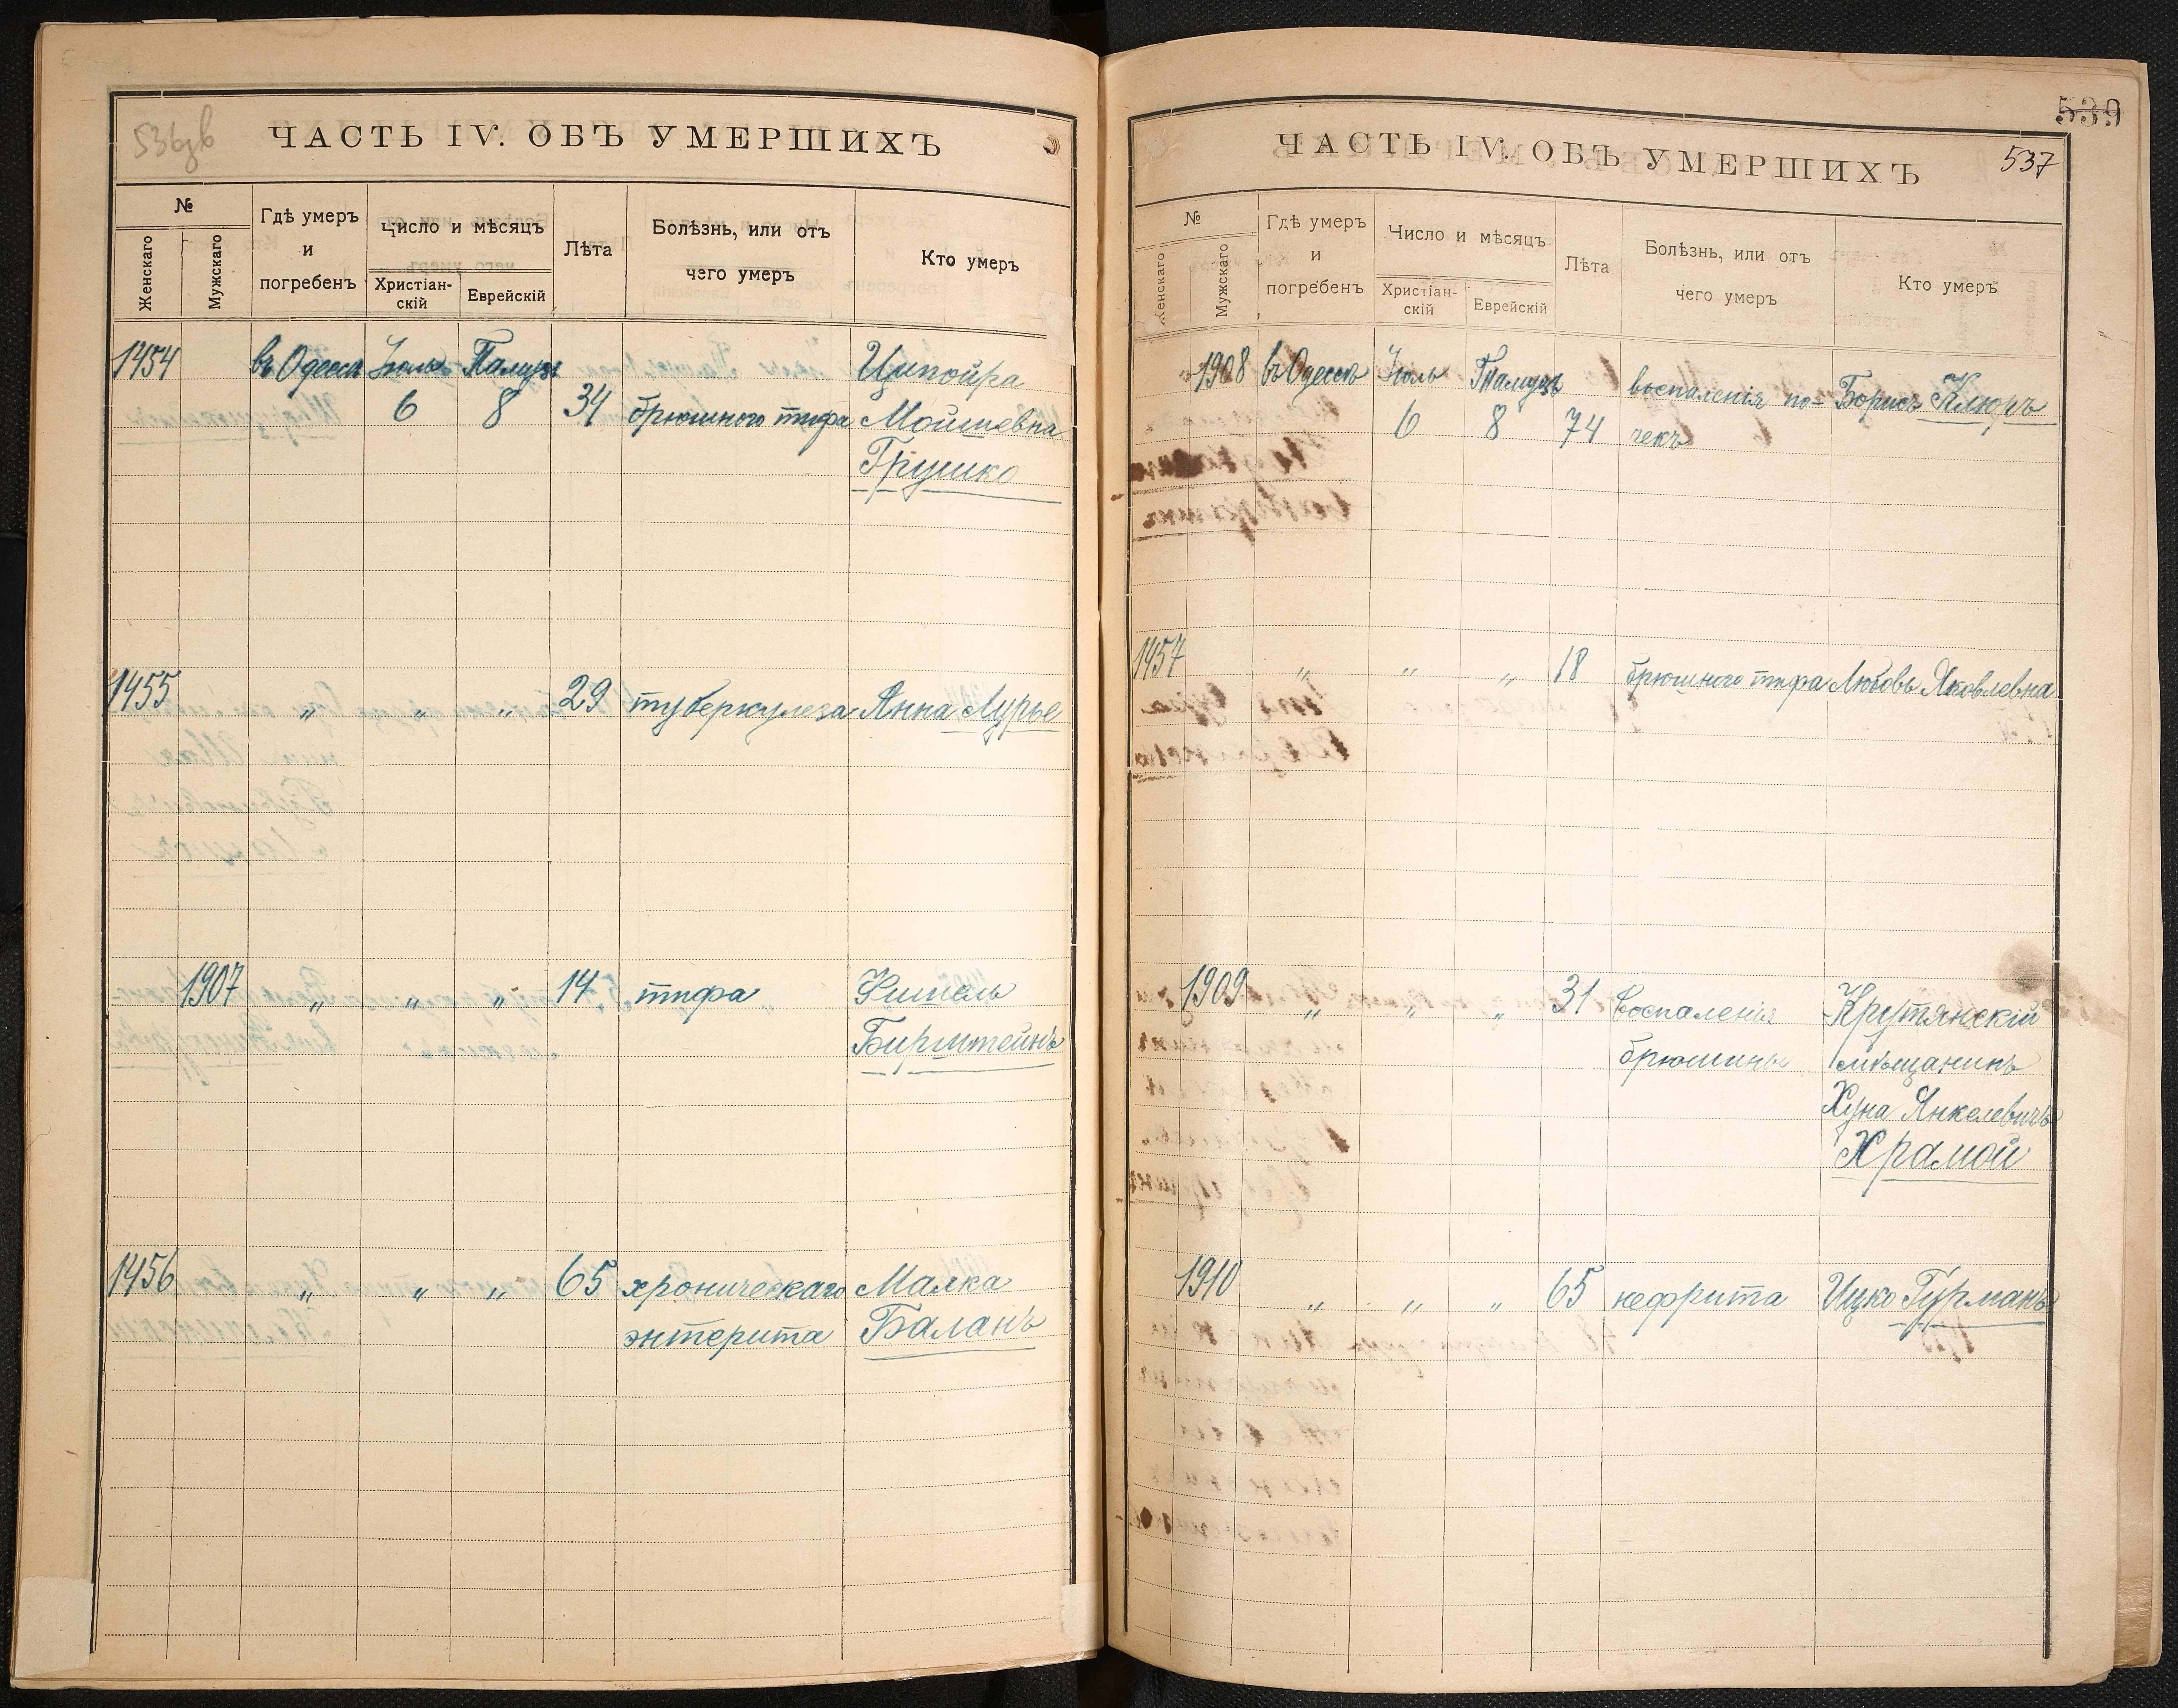 536зв
ЧАСТЬ IV. ОБЪ УМЕРШИХЪ
№
Женскаго
Мужскаго
Гдѣ умеръ
и
погребенъ
Число и мѣсяцъ
Христіан-
скій
Еврейскій
Лѣта
Болѣзнь, или отъ
чего умеръ
Кто умеръ
1454 въ Одессѣ Іюль Тамузъ Ципойра
6 8 34 брюшного тифа Мойшевна
Грушко
1455 „ „ „ 29 туберкулеза Анна Лурье
1907 „ „ „ 14 тифа Фишель
Бирштейнъ
1456 „ „ „ 65 хроническаго Малка
энтерита Баланъ
539
ЧАСТЬ IV. ОБЪ УМЕРШИХЪ
537
№
Женскаго
Мужскаго
Гдѣ умеръ
и
погребенъ
Число и мѣсяцъ
Христіан-
скій
Еврейскій
Лѣта
Болѣзнь, или отъ
чего умеръ
Кто умеръ
1908 въ Одессѣ Іюль Тамузъ воспаленія по- Борисъ Клюръ
6 8 74 чекъ
1457 „ „ „ 18 брюшного тифа Любовь Яковлевна
1909 „ „ „ 31 воспаленія Крутянскій
брюшины мѣщанинъ
Хуна Янкелевичъ
Храмой
1910 „ „ „ 65 нефрита Ицко Гурманъ